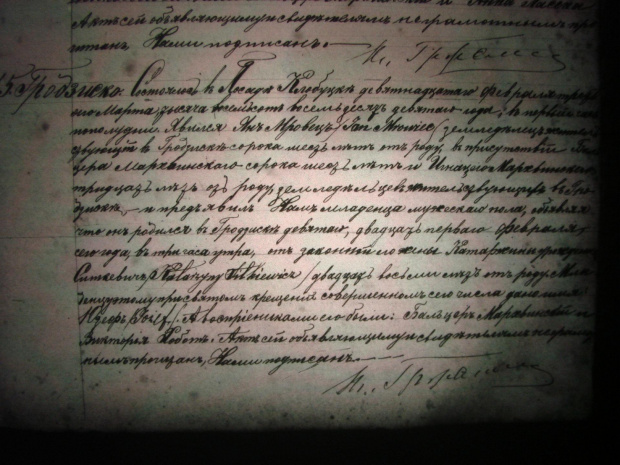 Актъ сей объявляющему и свидѣтелямъ неграмотнымъ про
читанъ Нами подписанъ.
15. Гродзиско. Состоялось въ Посадѣ Клобуцкѣ девятнадцатаго Февраля третья
го Марта тысяча восемьсотъ восемьдесятъ девятаго года, въ первый часъ
пополудни. Явился Янъ Мровецъ /Jan Mrowiec/ земледѣлецъ жительст
вующій въ Гродзискѣ сорока шесть лѣтъ отъ роду, въ присутствіи
Маравинскаго сорока шесть лѣтъ и Игнація Маравинскаго
тридцать лѣтъ отъ роду, земледѣльцевъ жительствующихъ въ Гро
дзискѣ, и предъявилъ Намъ младенца мужескаго пола, объявляя
что онъ родился въ Гродзискѣ девятаго, двадцать перваго Февраля
сего года, въ три часа утра, отъ законной его жены Катаржины
Ситкевичъ /Katarzyny Sitkiewicz/ двадцать восемь лѣтъ отъ роду. Мла
денцу этому при святомъ крещеніи совершенномъ сего числа дано имя
Юзефъ /Józef/. А воспріемниками его были: Бальцеръ Маравинскій и
Викторія Роботъ. Актъ сей объявляющему и свидѣтелямъ неграмот
нымъ прочитанъ, Нами подписанъ.